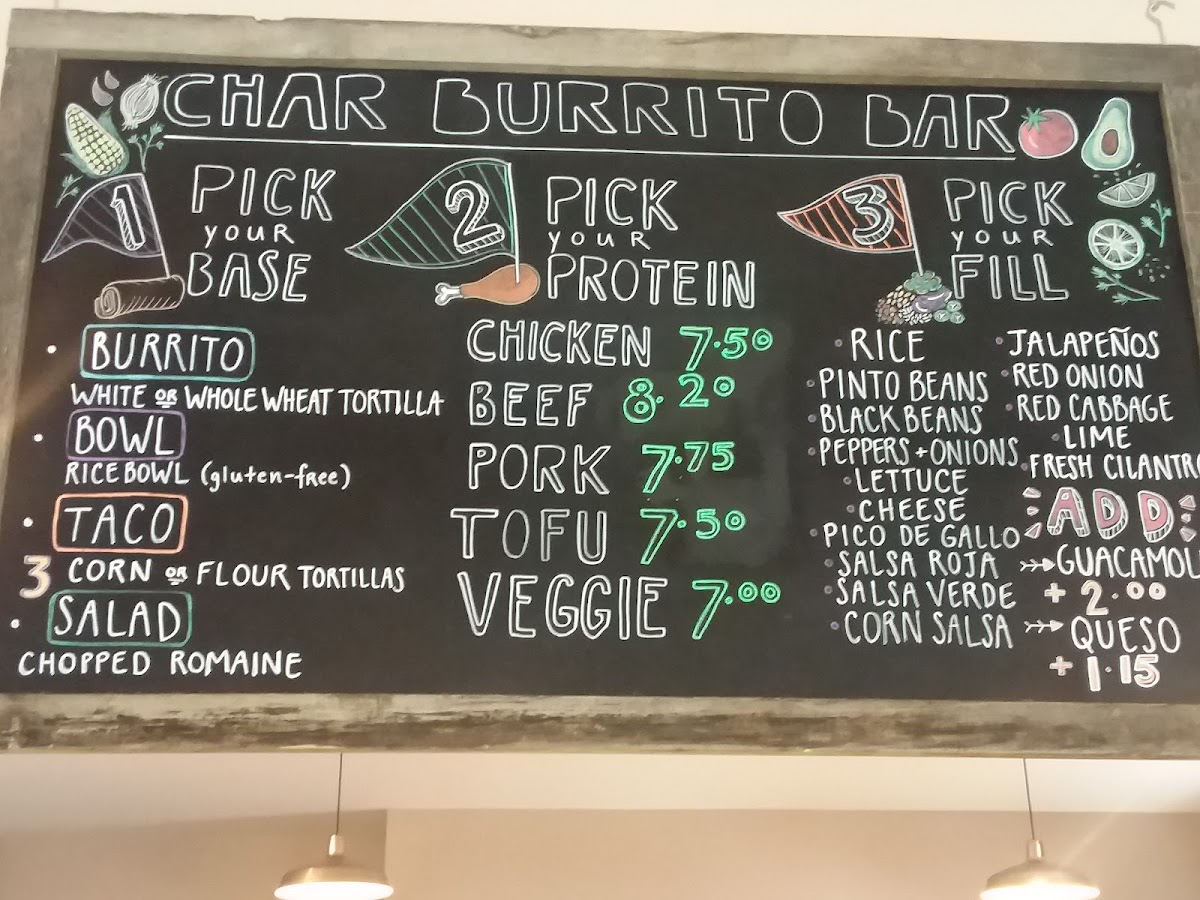 CHAR BURRITO BAR
1
PICK
YOUR
BASE
BURRITO
WHITE OR WHOLE WHEAT TORTILLA
BOWL
RICE BOWL (gluten-free)
TACO
3 CORN OR FLOUR TORTILLAS
SALAD
CHOPPED ROMAINE
2
PICK
YOUR
PROTEIN
CHICKEN 7.50
BEEF 8.20
PORK 7.75
TOFU 7.50
VEGGIE 7.00
3
PICK
YOUR
FILL
RICE
PINTO BEANS
BLACK BEANS
PEPPERS + ONIONS
LETTUCE
CHEESE
PICO DE GALLO
SALSA ROJA
SALSA VERDE
CORN SALSA
JALAPEÑOS
RED ONION
RED CABBAGE
LIME
FRESH CILANTRO
ADD
GUACAMOL
+ 2.00
QUESO
+ 1.15